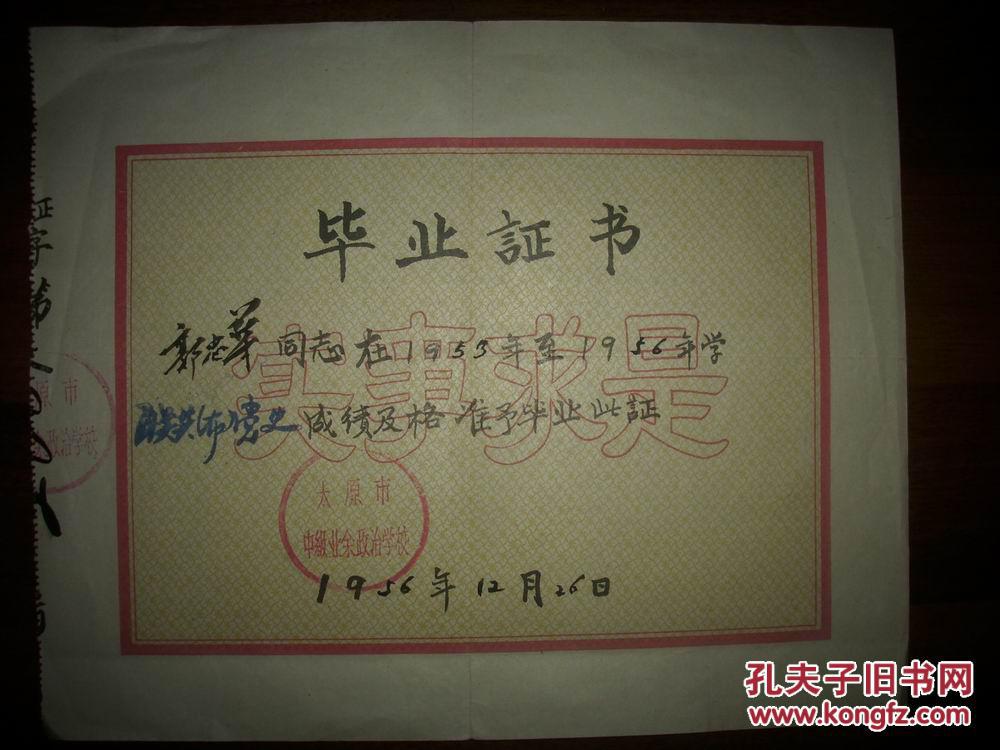 毕业証书
实事求是
郭忠华同志在1953年至1956年学
联共(布)党史成绩及格准予毕业此証
太原市
中級业余政治学校
1956年12月26日
証字第
原市
政治学校
孔夫子旧书网
www.kongfz.com